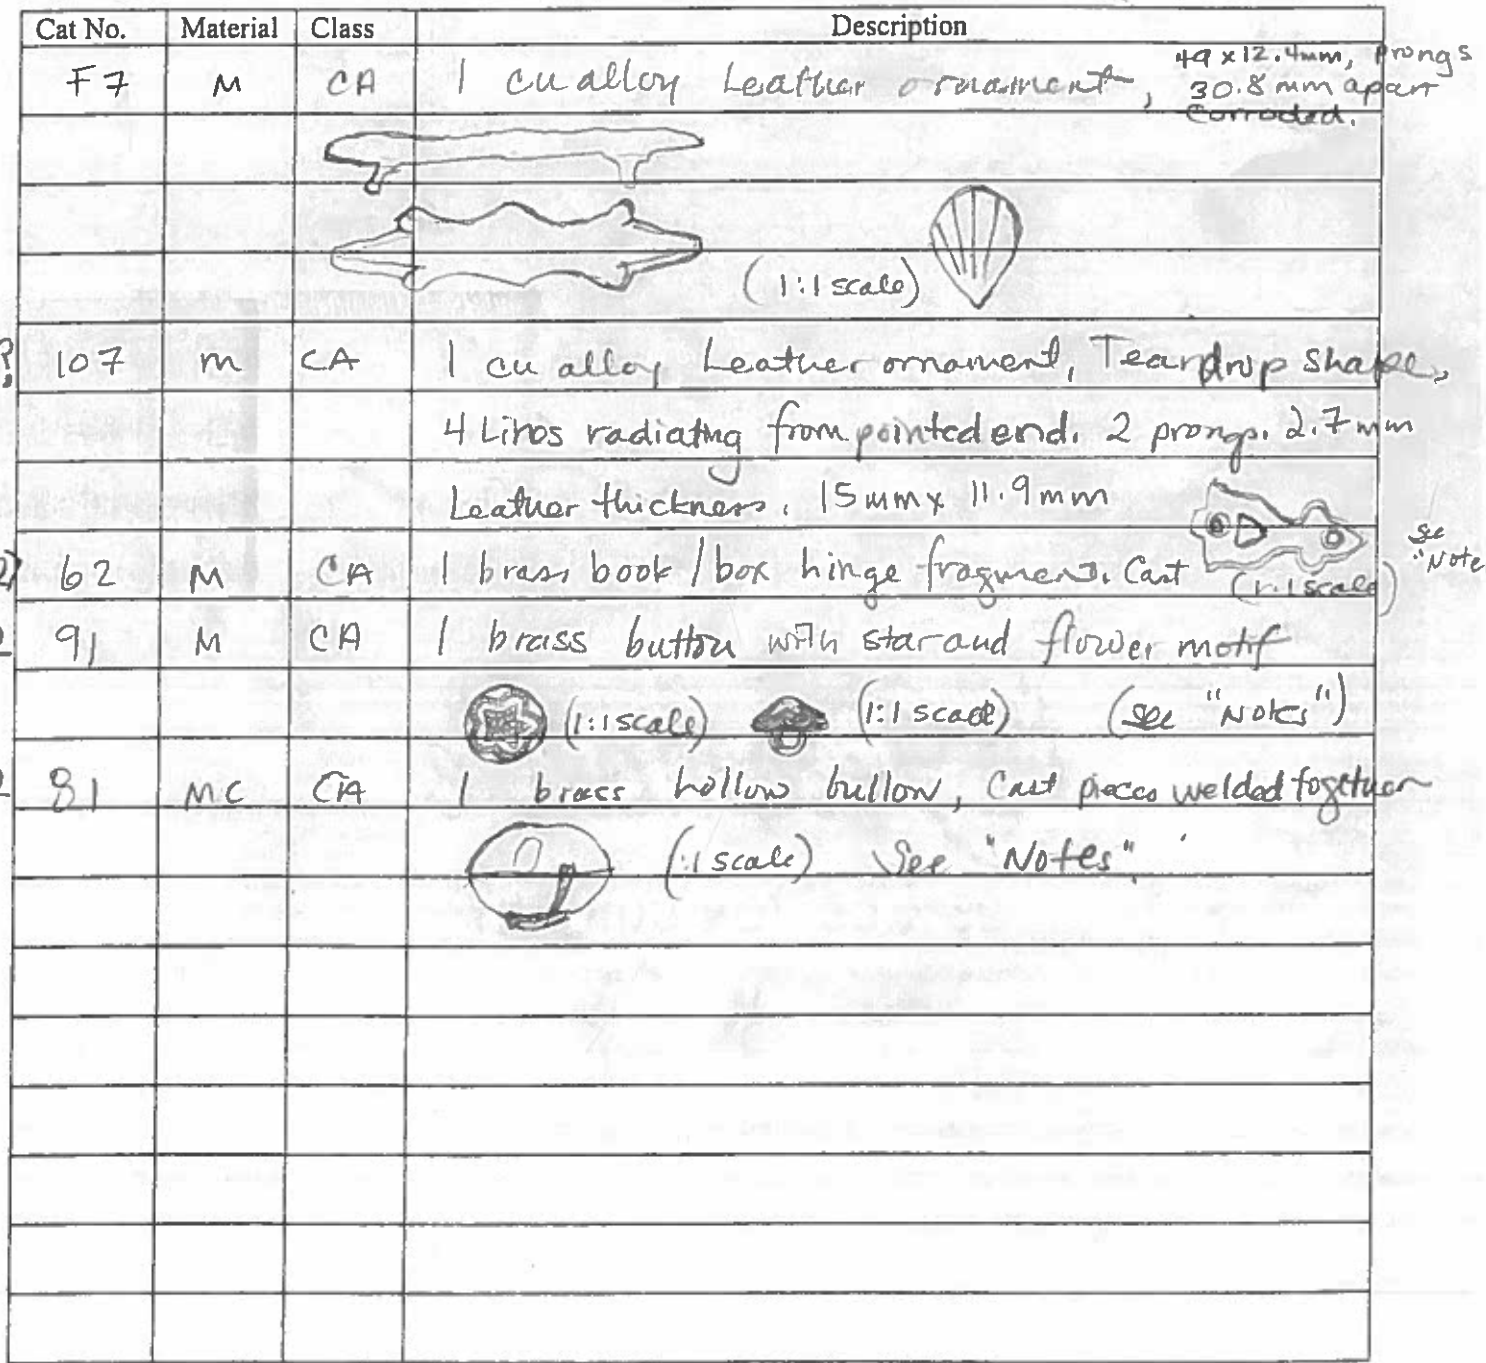 Cat No. Material Class Description
F7 M CA 1 cu alloy Leather ornament, 49 x 12.4mm, prongs
30.8 mm apart
Corroded.
(1:1 scale)
? 107 M CA 1 cu alloy Leather ornament, Teardrop shape,
4 Lines radiating from pointed end. 2 prongs. 2.7 mm
Leather thickness. 15mm x 11.9mm
62 M CA 1 brass book / box hinge fragment. Cast (1:1 scale) see
"Note
91 M CA 1 brass button with star and flower motif
(1:1 scale) (1:1 scale) (see "Notes")
81 MC CA 1 brass hollow button, Cast pieces welded together
(:1 scale) See "Notes".